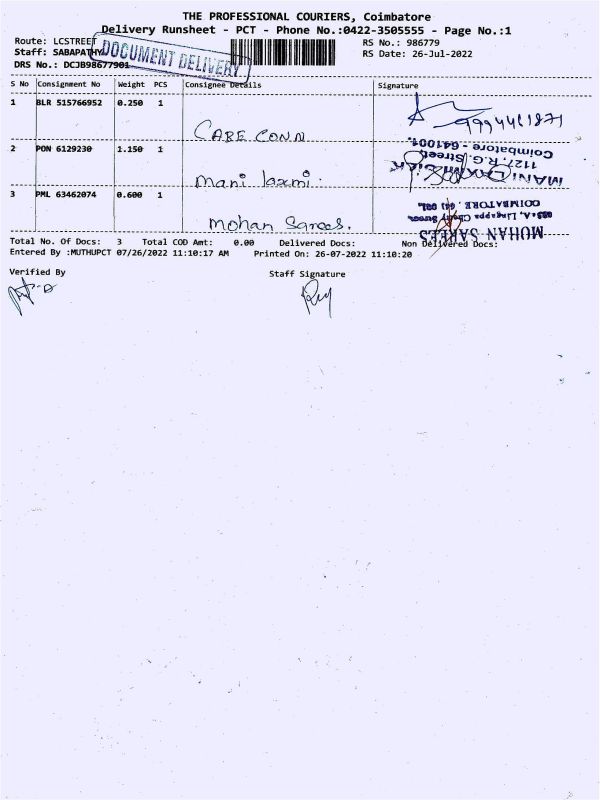 THE PROFESSIONAL COURIERS, Coimbatore
Delivery Runsheet - PCT - Phone No.:0422-3505555 - Page No.:1
Route: LCSTREET
RS No.: 986779
Staff: SABAPATHY
RS Date: 26-Jul-2022
DRS No.: DCJB98677901
DOCUMENT DELIVERY
S No Consignment No Weight PCS Consignee Details Signature
1 BLR 515766952 0.250 1
CARE CONN
2 PON 6129230 1.150 1
Mani laxmi
1127, R.G. Street,
Coimbatore - 641001.
3 PML 63462074 0.600 1
Mohan Sarees.
MOHAN SAREES
COIMBATORE
Total No. Of Docs: 3 Total COD Amt: 0.00 Delivered Docs: Non Delivered Docs:
Entered By :MUTHUPCT 07/26/2022 11:10:17 AM Printed On: 26-07-2022 11:10:20
Verified By Staff Signature